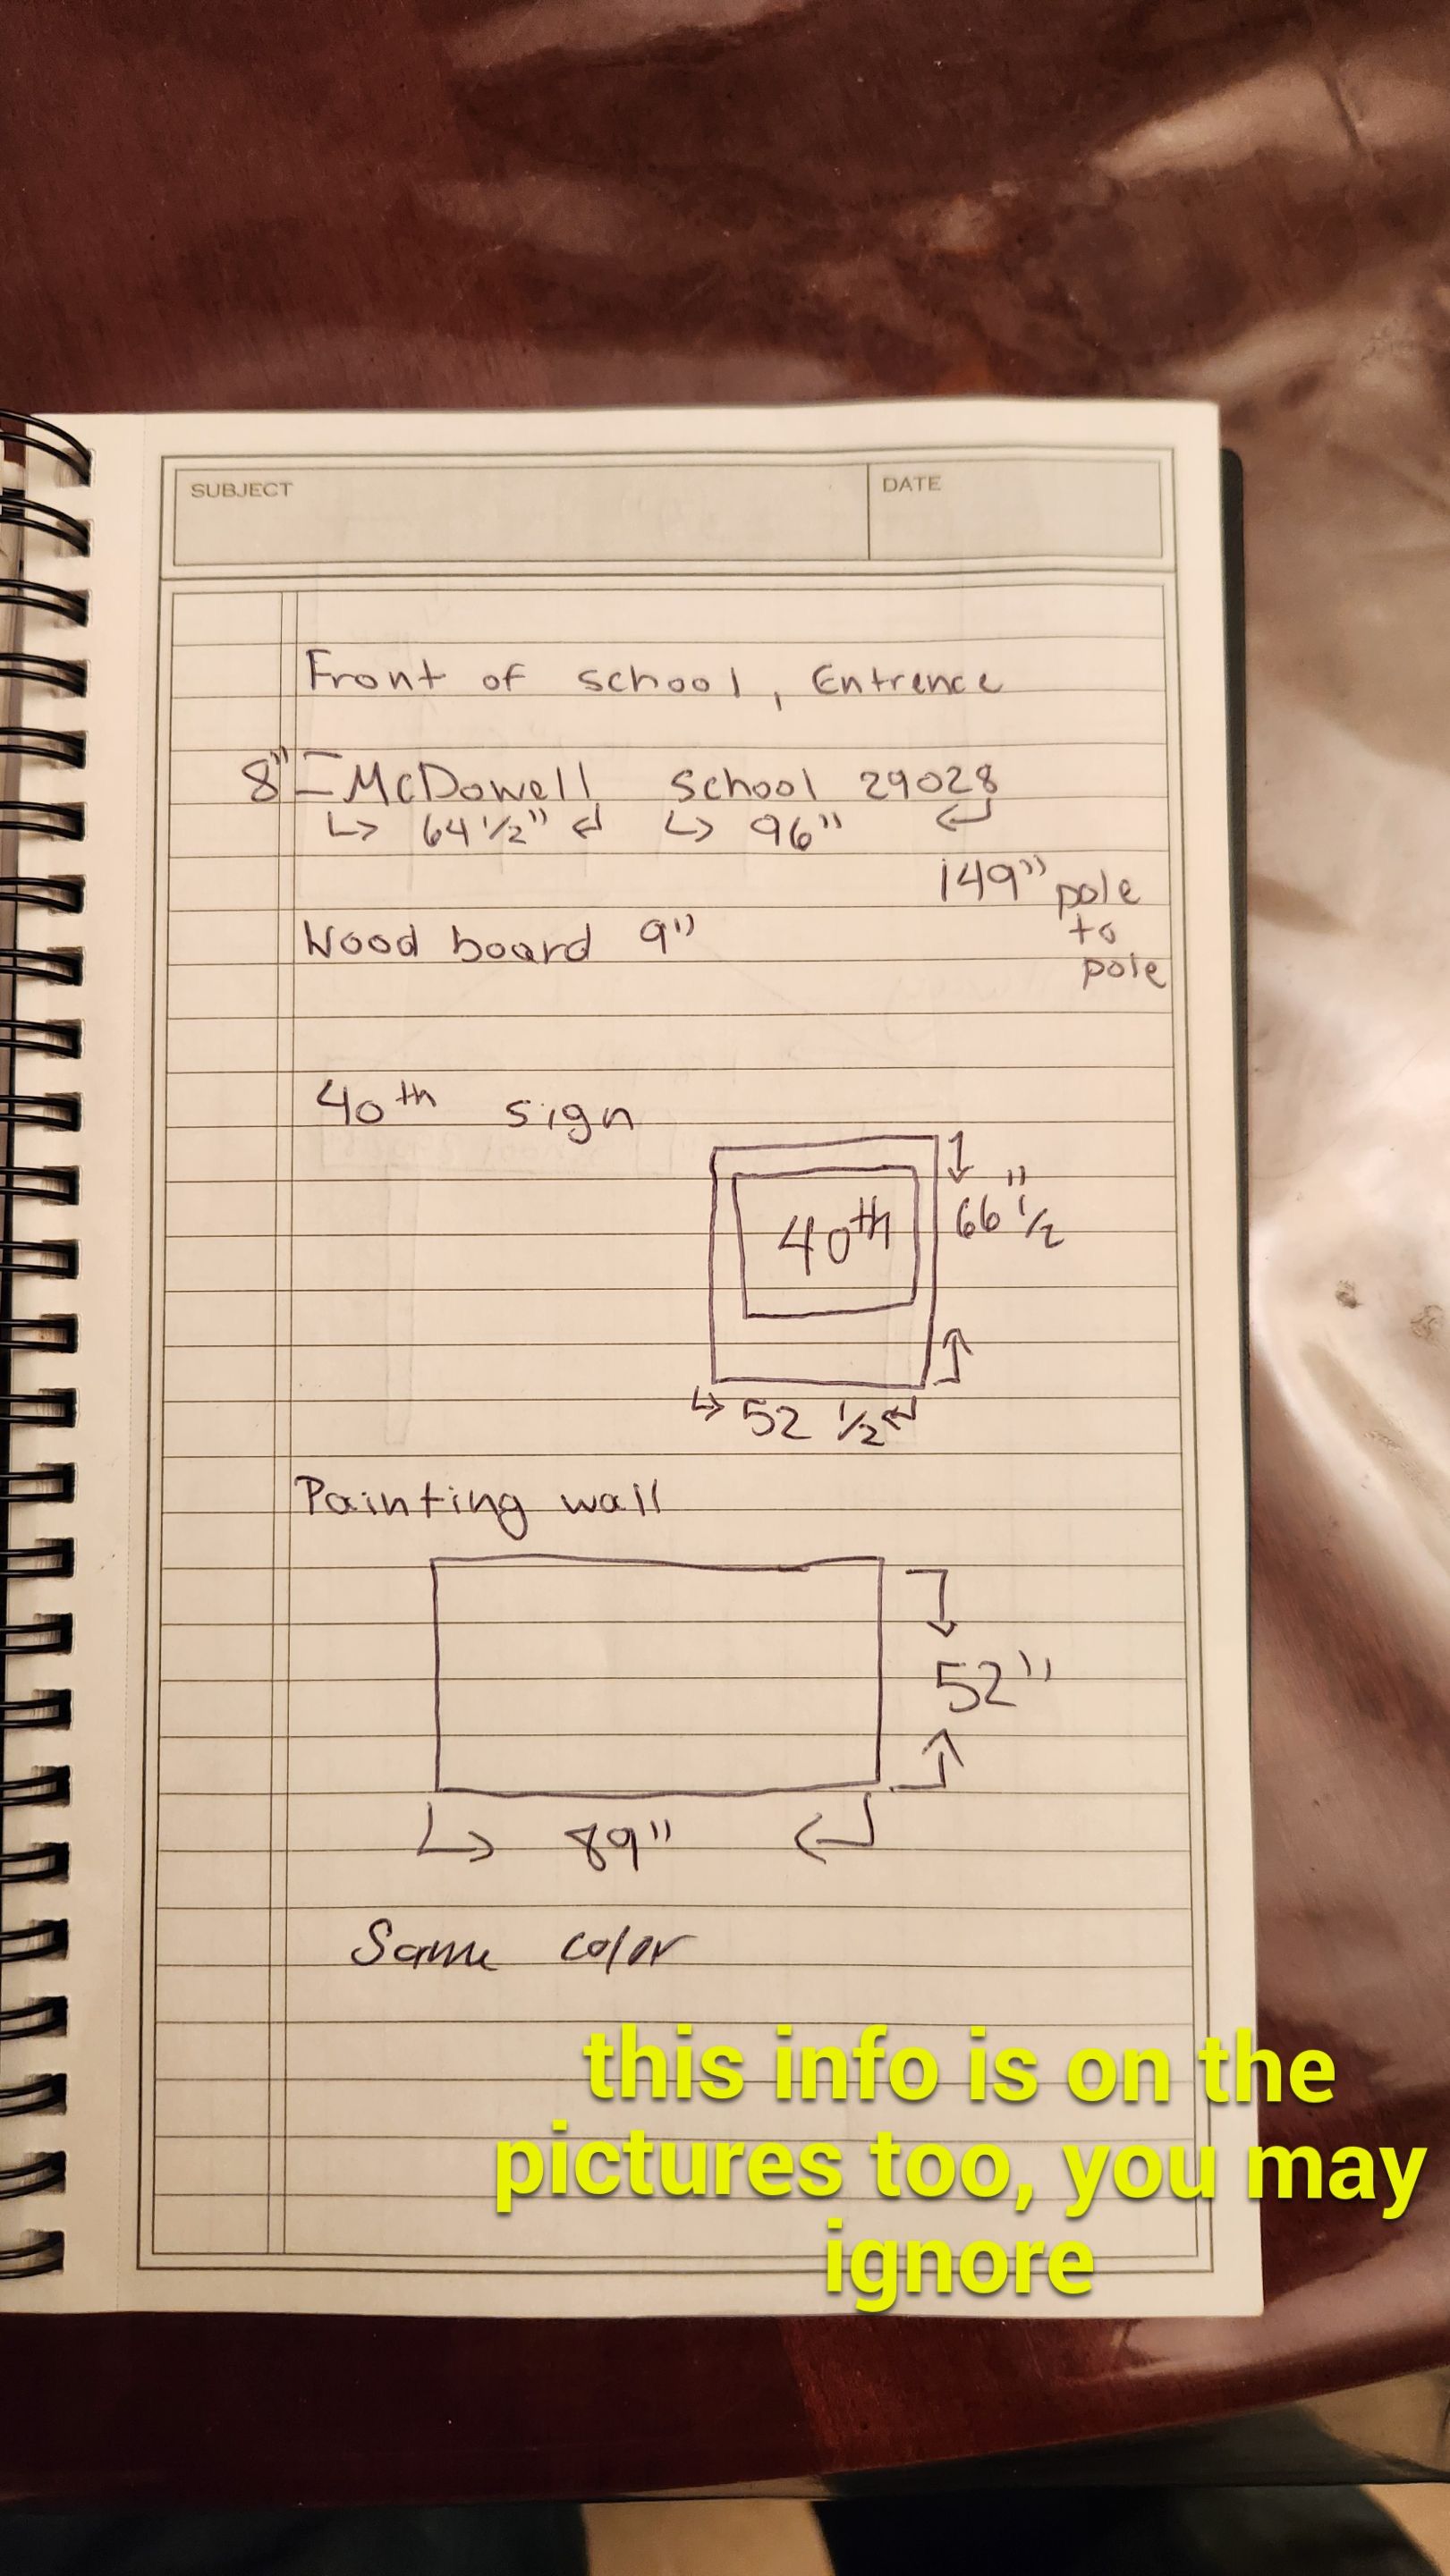 SUBJECT
DATE
Front of school, Entrence
8" McDowell School 29028
64 1/2" 96"
149" pole to pole
Wood board 9"
40th sign
40th
66 1/2"
52 1/2
Painting wall
52"
89"
Same color
this info is on the
pictures too, you may
ignore